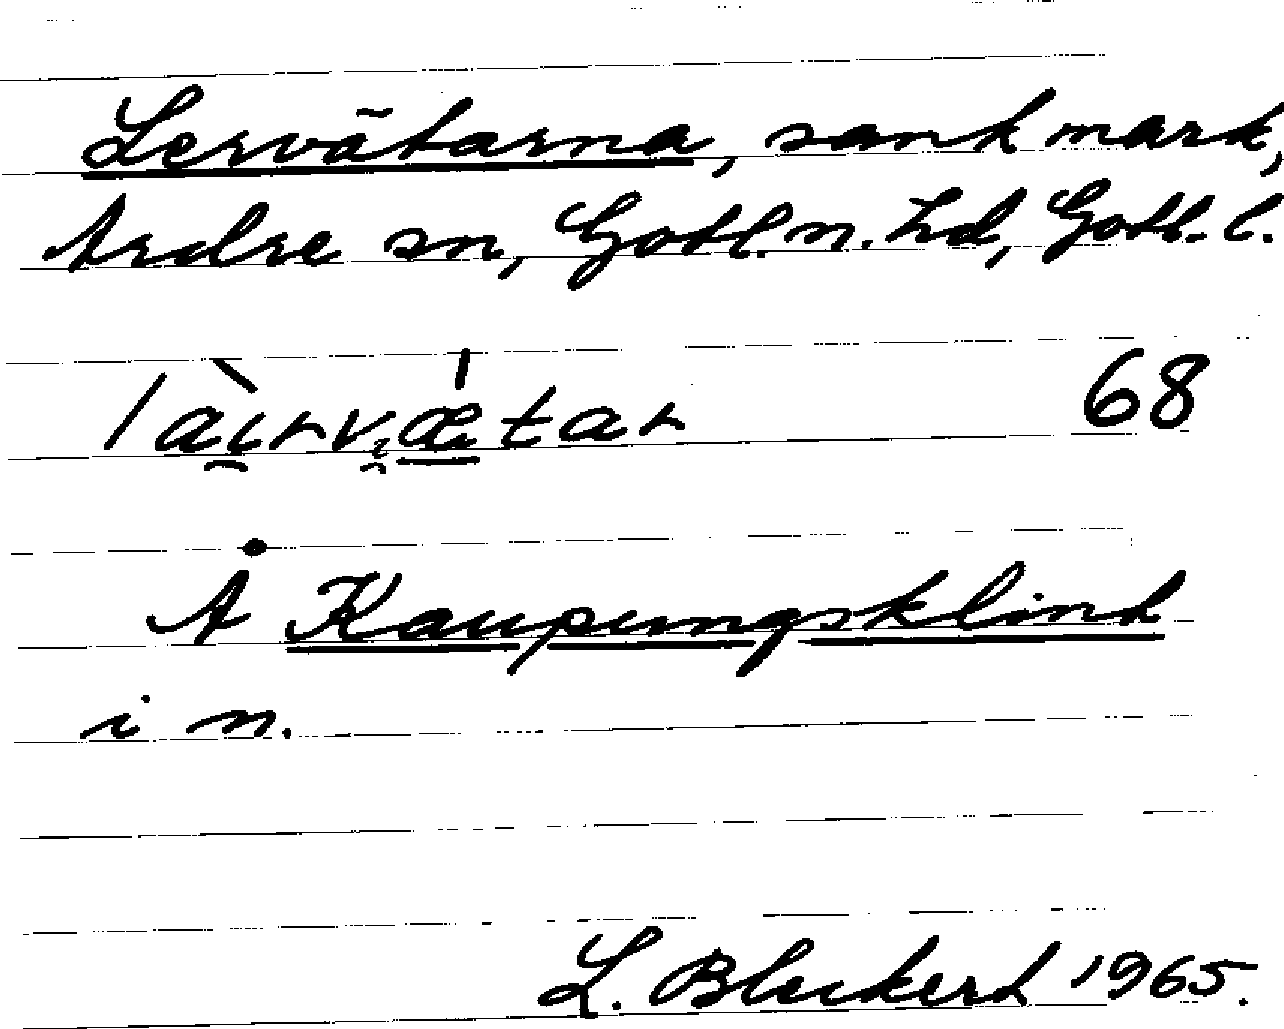 Lervätarna, sank mark,
Ardre sn, Gotl. n. hd, Gotl. l.
làı̯rvæ̀tar 68
Å Kaupungsklint
i n.
L. Bleckert 1965.